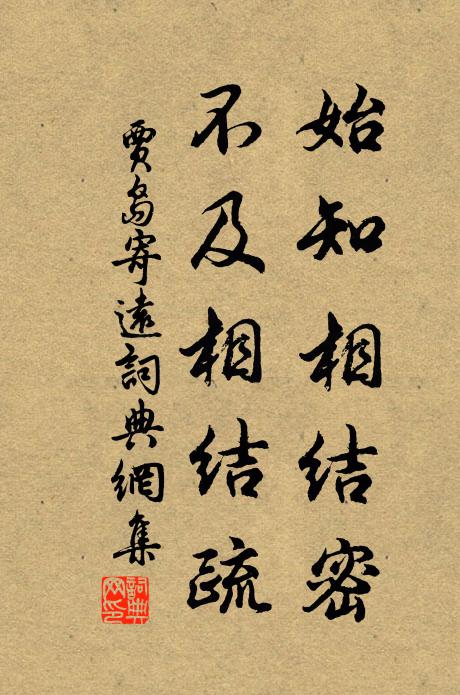 始知相结密
不及相结疏
賈島寄遠詞典網集
詞典网印